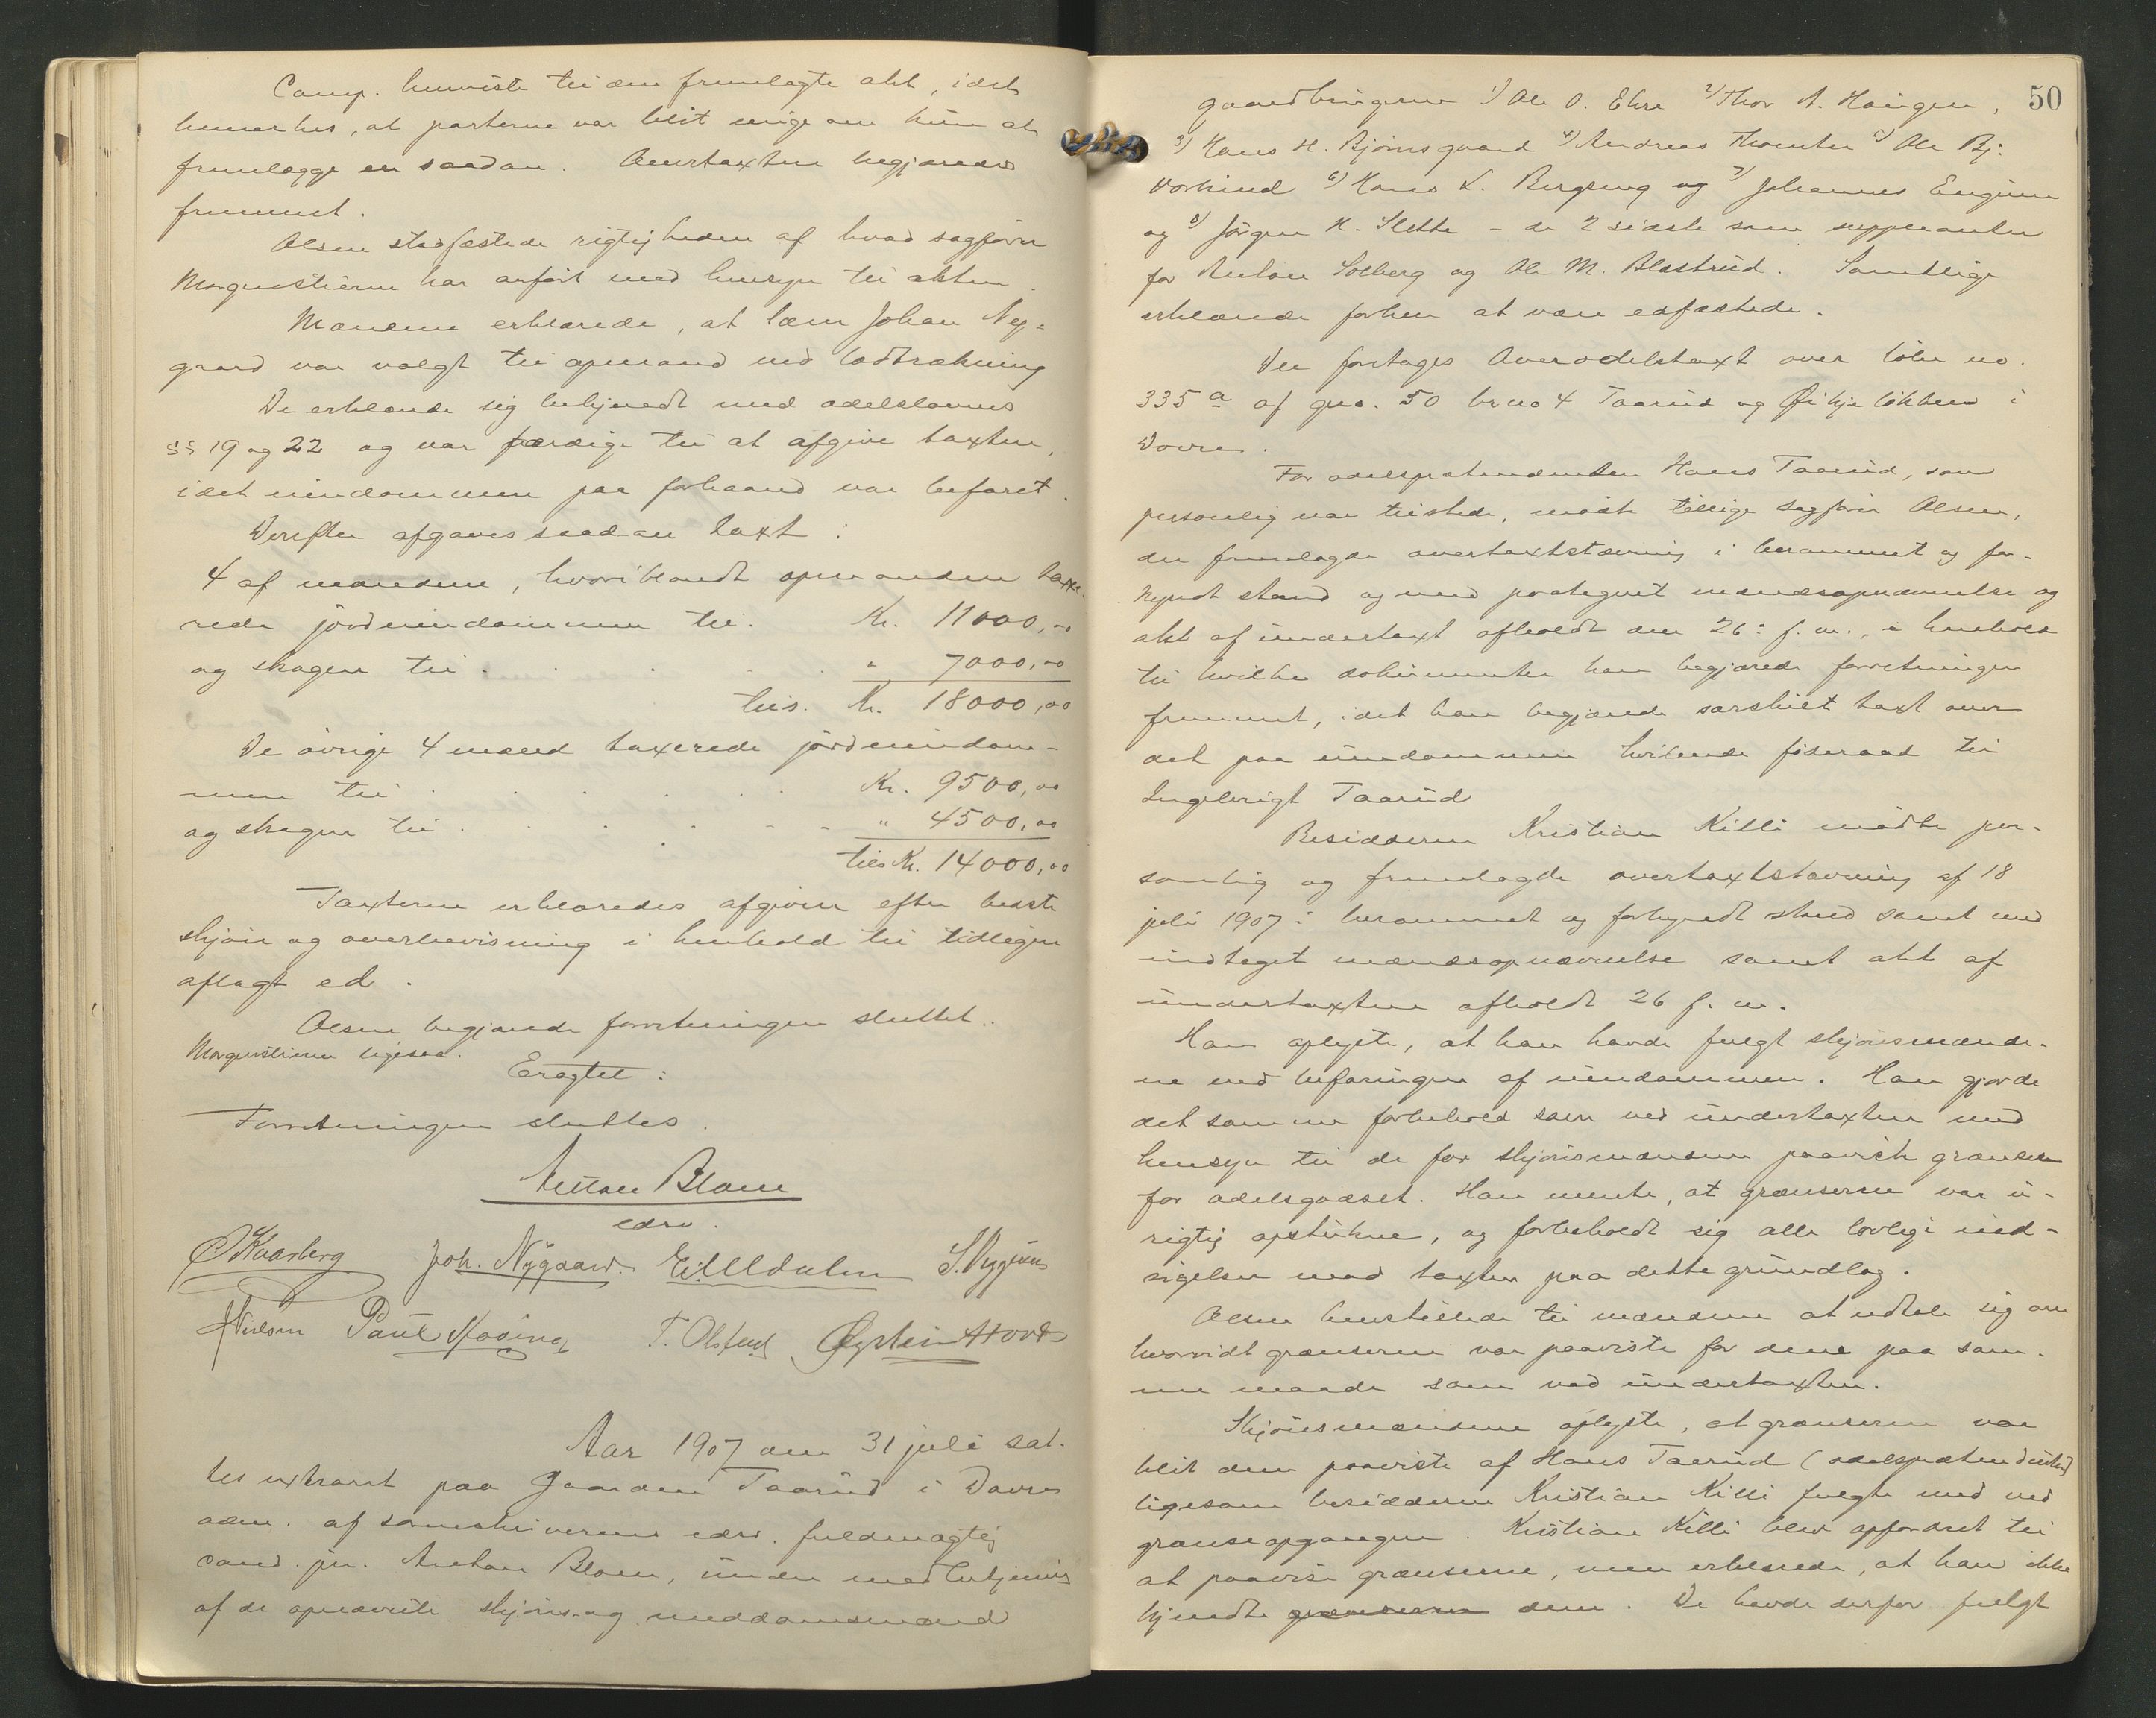 Comp. henviste til den fremlagte akt, idet
bemærkes, at parterne var blit enige om kun at
fremlægge en saadan. Overtaxten begjæredes
fremmet.
Olsen stadfæstede rigtigheden af hvad sagfører
Morgenstierne har anført med hensyn til akten.
Mændene erklærede, at lærer Johan Ny-
gaard var valgt til opmand ved lodtrækning
De erklærede sig bekjendt med odelslovens
§§ 19 og 22 og var færdige til at afgive taxten,
idet eiendommen paa forhaand var befaret.
Derefter afgaves saadan taxt:
4 af mændene, hvoriblandt opmanden taxe-
rede jordeiendommen til. Kr. 11000,00
og skogen til . . . . " 7000,00
tils. Kr. 18000,00
De øvrige 4 mænd taxerede jordeiendom-
men til . . . . . Kr. 9500,00
og skogen til . . . . . " 4500,00
tils Kr. 14000,00
Taxterne erklæredes afgivne efter bedste
skjøn og overbevisning i henhold til tidligere
aflagt ed.
Olsen begjærede forretningen sluttet.
Morgenstierne ligesaa.
Eragtet:
Forretningen sluttes.
Anton Blom
edsv.
O Kvarberg Joh. Nygaard. E. Ulldalen S. Bryggesaa
Nielsen Paul T. Olstad Øystein Hovde
Aar 1907 den 31 juli sat-
tes extraret paa Gaarden Taarud i Dovre
adm. af sorenskriverens edsv. fuldmægtig
cand. jur. Anton Blom, under medbetjening
af de opnævnte skjøns- og meddomsmænd
50
gaardbrugerne 1) Ole O. Ekre 2) Thor A. Haugen,
3) Hans H. Bjørnsgaard 4) Andreas Thomter 5) Ole Bj:
Vorkind 6) Hans K. Bergseng og 7) Johannes Engum
og 8) Jørgen K. Slette – de 2 sidste som suppleanter
for Anton Solberg og Ole M. Blestrud. Samtlige
erklærede forhen at være edfæstede.
Der foretages Overodelstaxt over løbe no.
335 a af gno. 50 brno 4 Taarud og Øikjeløkken i
Dovre.
For odelsprætendenten Hans Taarud, som
personlig var tilstede, mødte tillige sagfører Olsen,
der fremlagde overtaxtstævning i berammet og for-
kyndt stand og med paategnet mændsopnævnelse og
akt af undertaxt afholdt den 26: f. m., i henhold
til hvilke dokumenter han begjærede forretningen
fremmet, idet han begjærede særskilt taxt over
det paa eiendommen hvilende føderaad til
Ingebrigt Taarud
Besidderen Kristian Killi mødte per-
sonlig og fremlagde overtaxtstævning af 18
juli 1907 i berammet og forkyndt stand samt med
indtaget mændsopnævnelse samt akt af
undertaxten afholdt 26 f. m.
Han oplyste, at han havde fulgt skjønsmænde-
ne ved befaringen af eiendommen. Han gjorde
det samme forbehold som ved undertaxten med
hensyn til de for skjønsmændene paaviste grænser
for odelsgodset. Han mente, at grænserne var u-
rigtig opstukne, og forbeholdt sig alle lovlige ind-
sigelser mod taxten paa dette grundlag.
Olsen henstillede til mændene at udtale sig om
hvorvidt grænserne var paaviste for dem paa sam-
me maade som ved undertaxten.
Skjønsmændene oplyste, at grænserne var
blit dem paaviste af Hans Taarud (odelsprætendenten)
ligesom besidderen Kristian Killi fulgte med ved
grænseopgangen. Kristian Killi blev opfordret til
at paavise grænserne, men erklærede, at han ikke
kjendte grænserne dem. De havde derfor fulgt